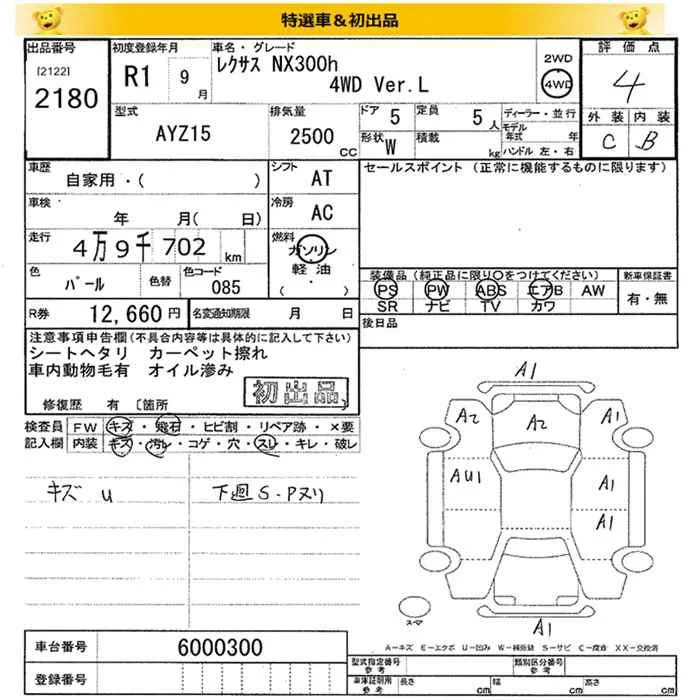 特選車&初出品
出品番号
[2122]
2180
初度登録年月
R1 9
月
車名・グレード
レクサス NX300h
4WD Ver.L
2WD
4WD
評価点
4
外装 内装
C B
型式
AYZ15
排気量
2500
CC
ドア 5
定員 5 人
形状 W
積載 kg
ディーラー・並行
モデル年式 年
ハンドル 左・右
車歴
自家用・( )
シフト
AT
車検
年 月( 日)
冷房
AC
走行
4万9千702 km
燃料
ガソリン
軽油
( )
色
パール
色替
色コード
085
R券 12,660円
名変通知期限 月 日
セールスポイント (正常に機能するものに限ります)
装備品(純正品に限り○をつけてください)
PS PW ABS エアB AW
SR ナビ TV カワ
新車保証書
有・無
後日品
注意事項申告欄(不具合内容等は具体的に記入して下さい)
シートヘタリ カーペット擦れ
車内動物毛有 オイル滲み
初出品
修復歴 有 〔箇所 〕
検査員 FW キズ・飛石・ヒビ割・リペア跡・×要
記入欄 内装 キズ・汚レ・コゲ・穴・スレ・キレ・破レ
キズ U
下廻S・Pヌリ
A1
A2
A2
A1
AU1
A1
A1
A1
スペア
A=キズ E=エクボ U=凹み W=補修跡 S=サビ C=腐食 XX=交換済
車台番号 6000300
登録番号
型式指定番号
参考
類別区分番号
参考
車庫証明用
参考
長さ cm
幅 cm
高さ cm